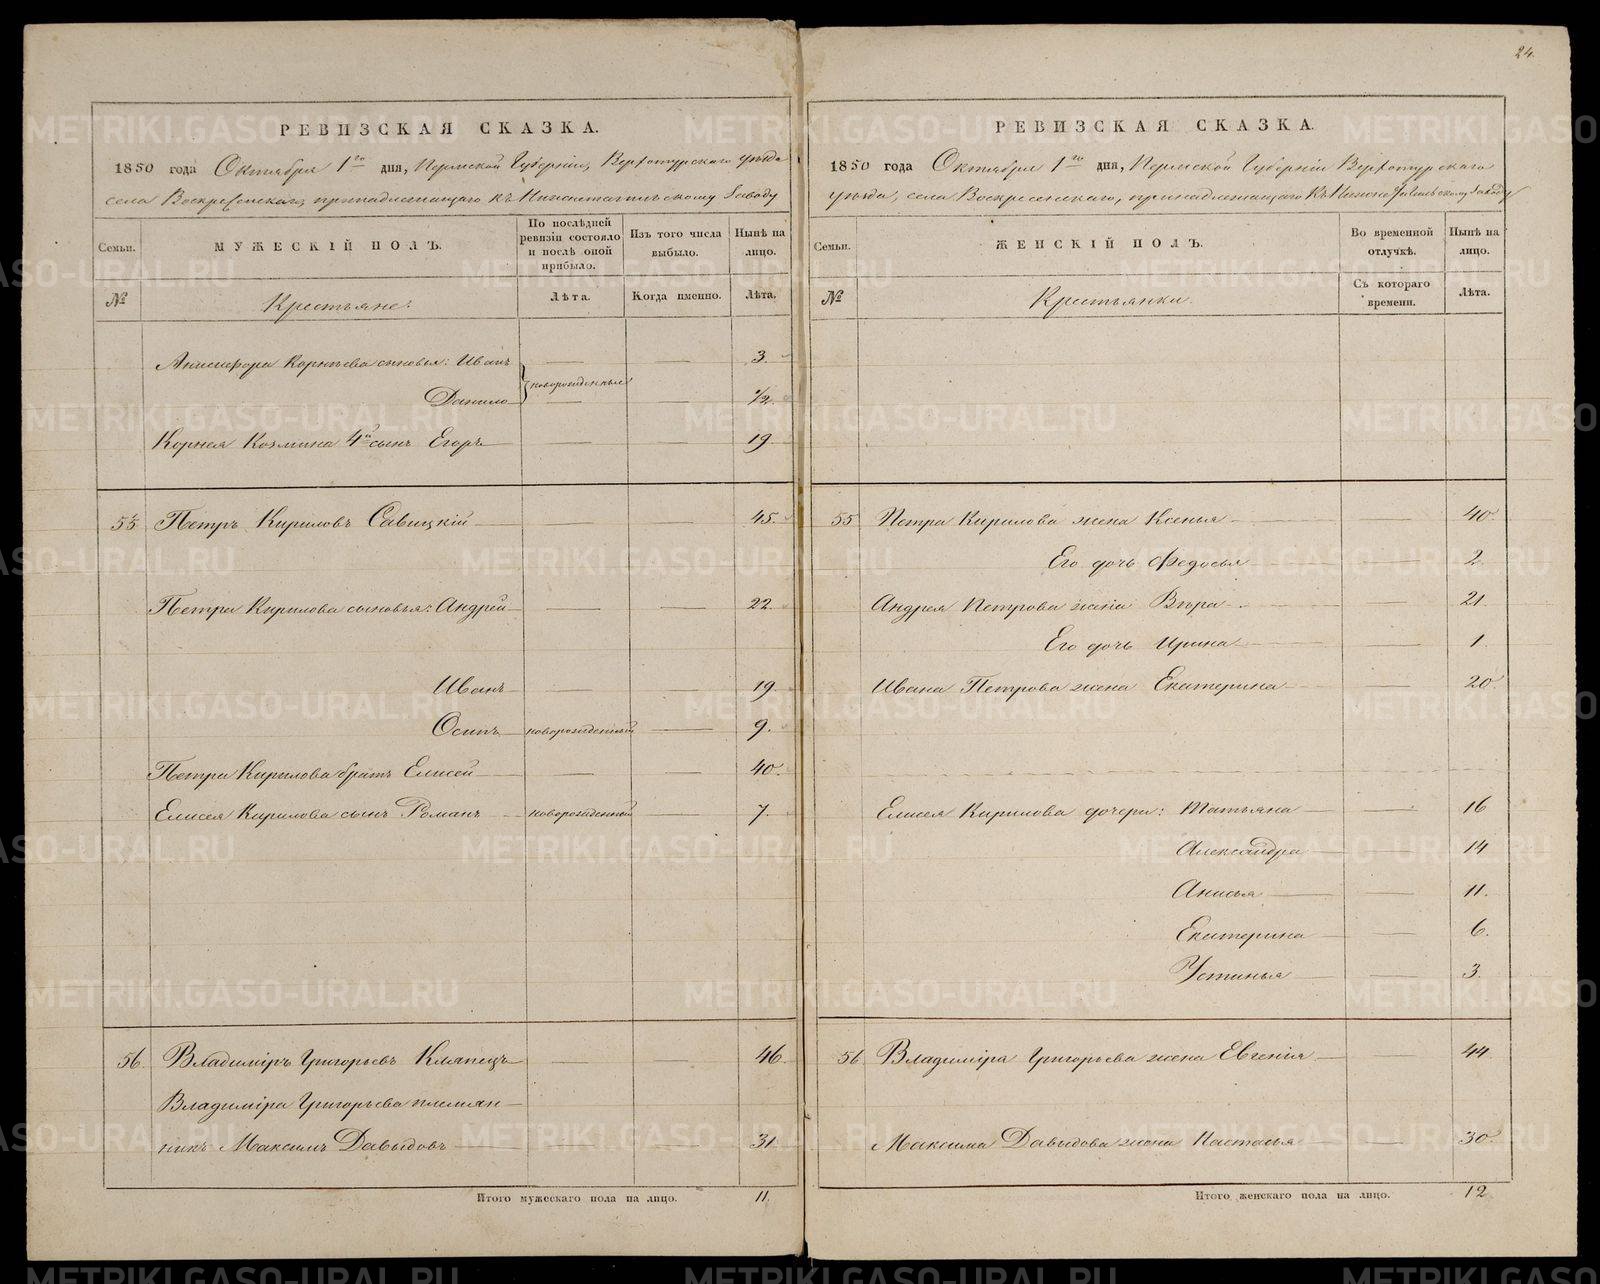 24.
РЕВИЗСКАЯ СКАЗКА.
1850 года Октября 1го дня, Пермской Губерніи, Верхотурскаго уѣзда
села Воскресенскаго, принадлежащаго къ Нижнетагильскому Заводу
Семьи.
МУЖЕСКІЙ ПОЛЪ.
По послѣдней ревизіи состояло и послѣ оной прибыло.
Изъ того числа выбыло.
Нынѣ на лицо.
№
Крестьяне:
Лѣта.
Когда именно.
Лѣта.
Анисифора Корнѣева сыновья: Иванъ 3.
новорожденные
Данило 1/2.
Корнея Козмина 4й сынъ Егоръ 19.
55 Петръ Кириловъ Савицкій 45.
Петра Кирилова сыновья: Андрей 22.
Иванъ 19.
Осипъ новорожденный 9.
Петра Кирилова братъ Елисей 40.
Елисея Кирилова сынъ Романъ новорожденный 7.
56. Владиміръ Григорьевъ Кляпецъ 46.
Владиміра Григорьева племян-
никъ Максимъ Давыдовъ 31.
Итого мужескаго пола на лицо. 11.
РЕВИЗСКАЯ СКАЗКА.
1850 года Октября 1го дня, Пермской Губерніи Верхотурскаго
уѣзда, села Воскресенскаго, принадлежащаго къ Нижнетагильскому Заводу
Семьи.
ЖЕНСКІЙ ПОЛЪ.
Во временной отлучкѣ.
Нынѣ на лицо.
№
Крестьянки.
Съ котораго времени.
Лѣта.
55 Петра Кирилова жена Ксенья 40.
Его дочь Федосья 2.
Андрея Петрова жена Вѣра 21.
Его дочь Ирина 1.
Ивана Петрова жена Екатерина 20.
Елисея Кирилова дочери: Татьяна 16
Александра 14
Анисья 11.
Екатерина 6.
Устинья 3.
56 Владиміра Григорьева жена Евгенія 44.
Максима Давыдова жена Настасья 30.
Итого женскаго пола на лицо. 12
METRIKI.GASO-URAL.RU